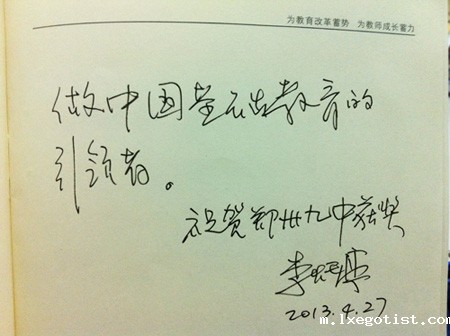 为教育改革蓄势 为教师成长蓄力
做中国基础教育的
引领者。
祝贺郑州九中获奖
李
2013.4.27
m.lxegotist.com